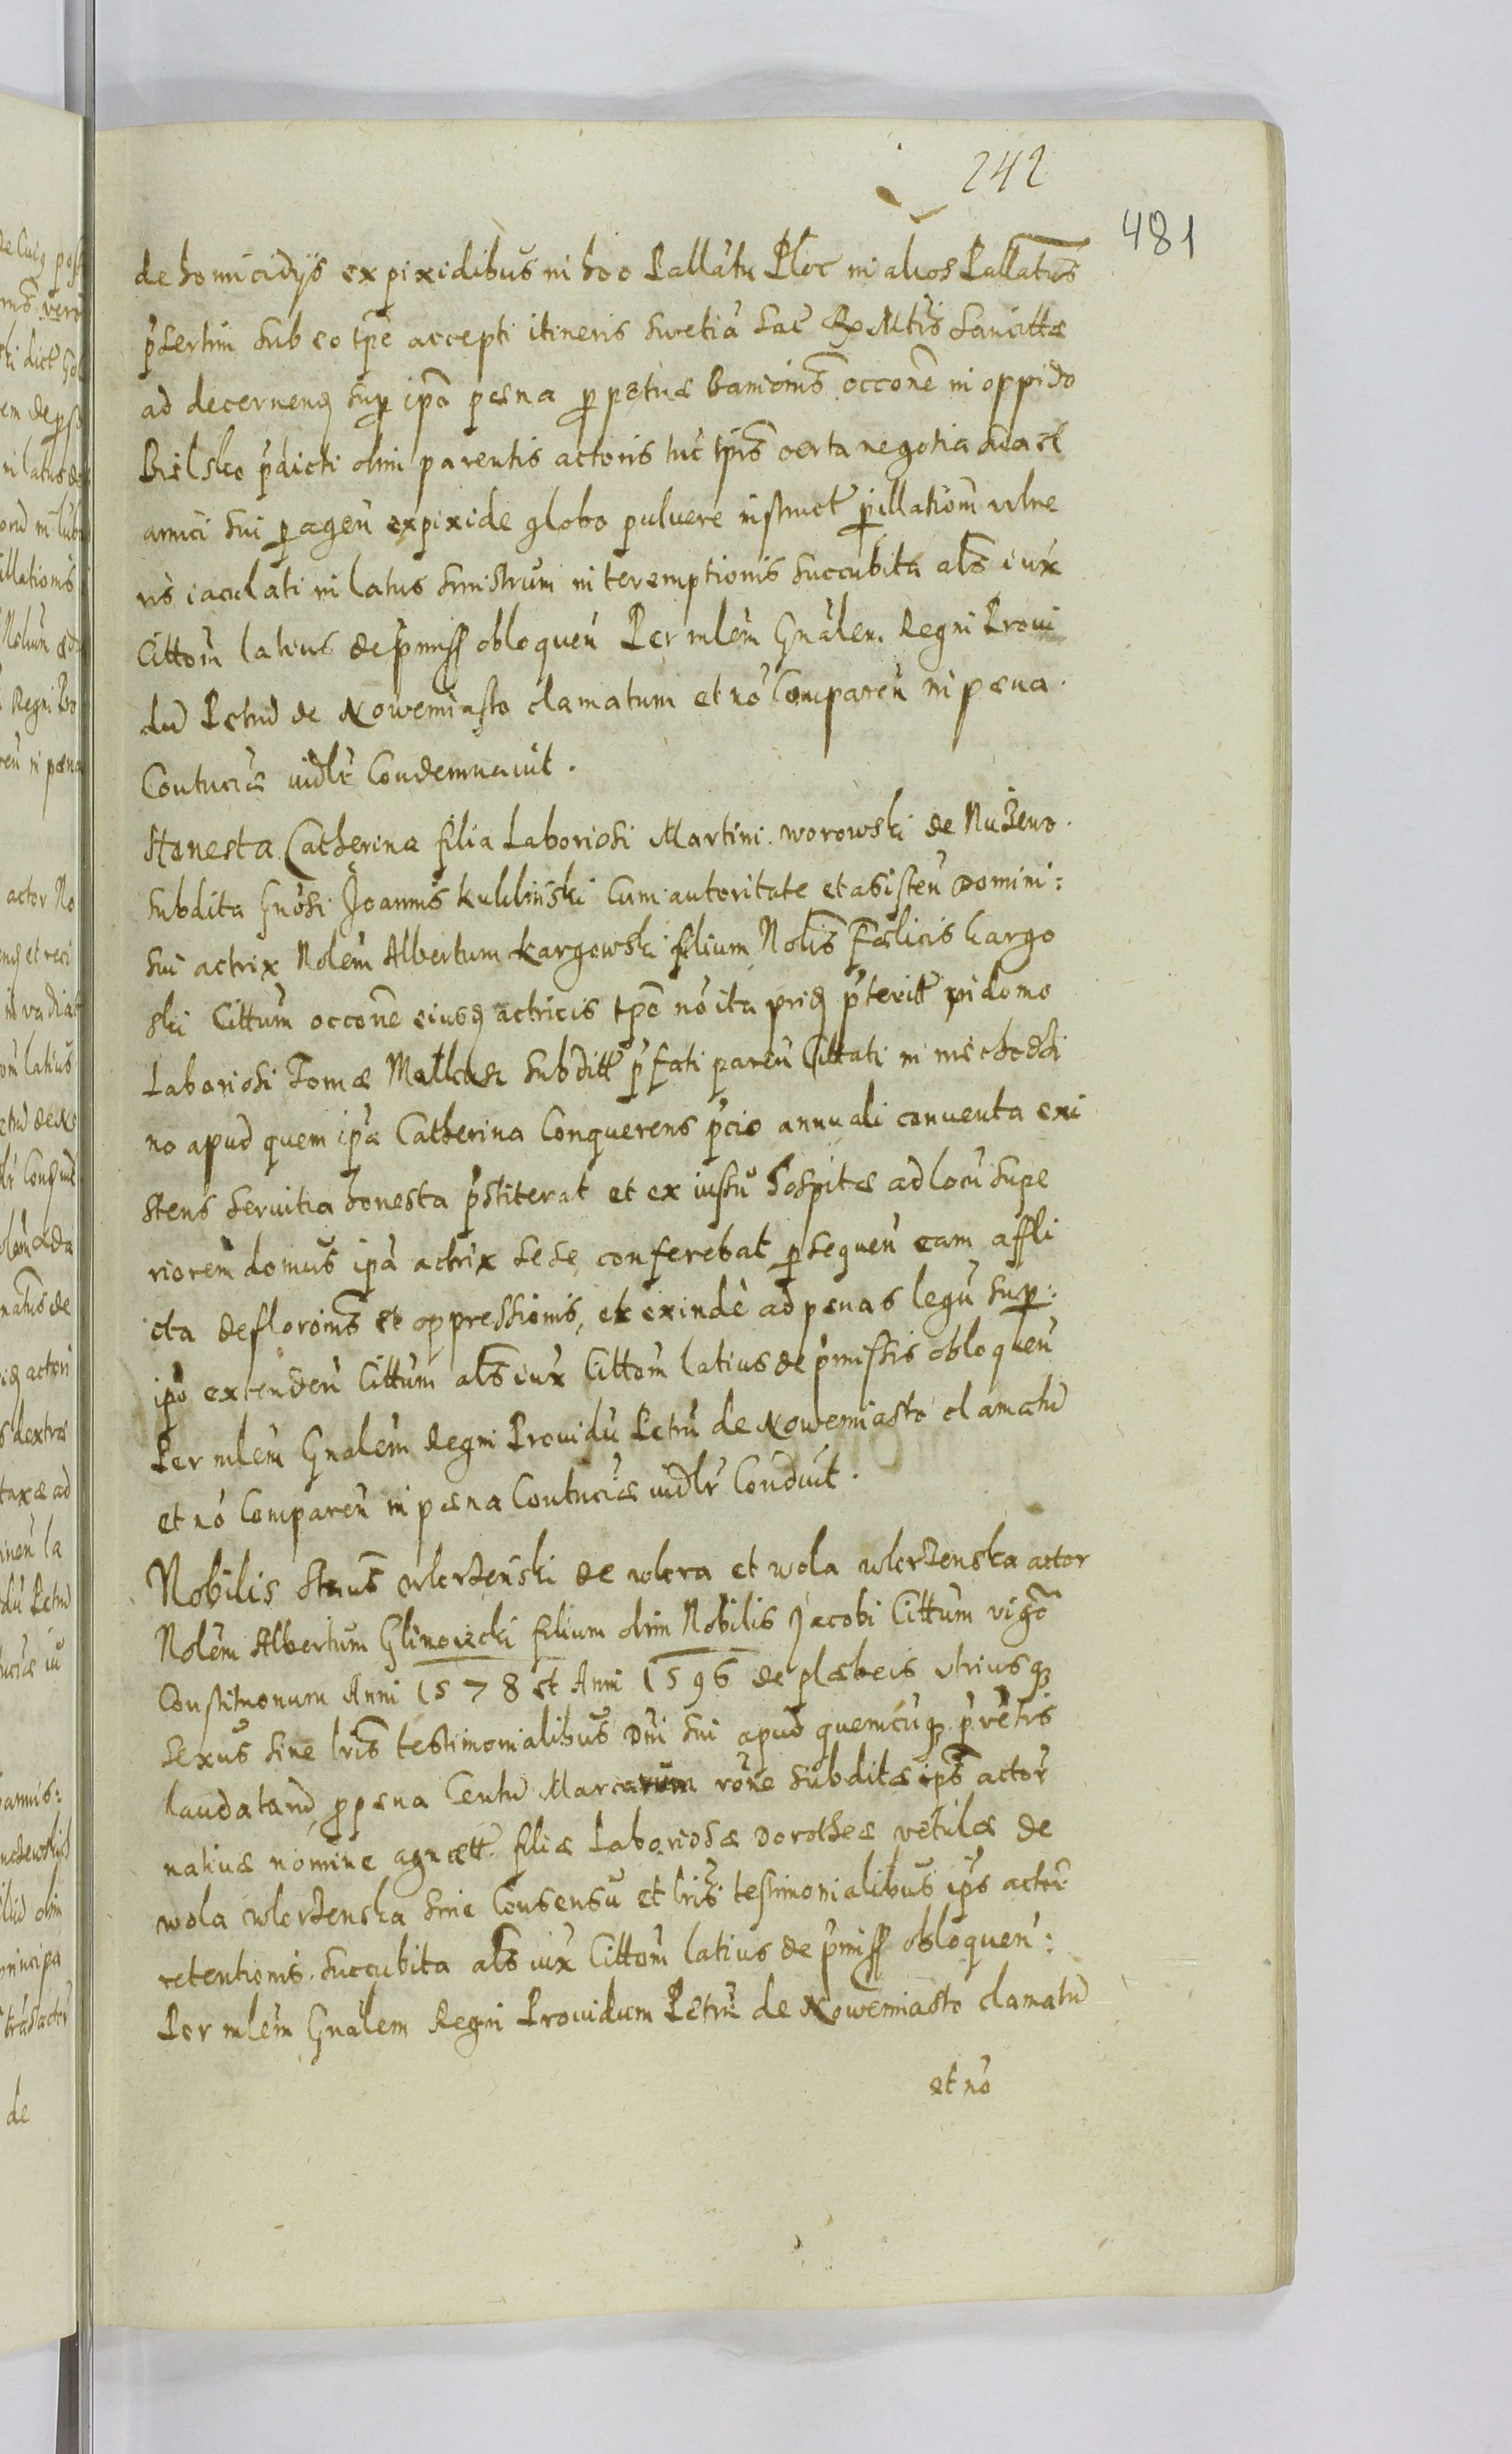 242
481
de homicidijs ex pixidibus in hoc Pallatu Ploc in alios Pallatus
p̃sertim sub eo tp̃e accepti itineris Swetiã Sac̃ Rx Mttis sancittæ
ad decernenđ sup ipõ pæna perpetuæ Bannionis̃ occõne in oppido
Bielsko p̃dicti olim parentis actoris tũc tp̃ris certa negotia
amici sui peragen̄ ex pixide globo puluere instruct̃ per illatiom̃ vulne
ris iaculati in latus sinistrum interemptionis succubita als̃ iux̃
Cittom̃ latius de p̃miss obloquen̄ Per mlẽm Gnãlen. Regni Proui
dũ Petrũ de Nowemiasto clamatum et nõ Comparen̄ in pæna.
Contuciæ̃ uidlr̃ Condemnauit.
Honesta Catherina filia Laboriosi Martini. worowski de Nużewo.
Subdita Gnõsi Joannis Kuklinski Cum autoritate et asisten̄ Domini:
sui actrix Nolẽm Albertum Kargowski filium Nolis̃ Fælicis Kargo
ski Cittum̃ occõne eiusđ actricis tp̃e nõ ita prid̃ p̃terit̃ in domo
Laboriosi Tomæ subditt̃ p̃fati paren̄ Cittati in miechodzi
no apud quem ip̃a Catherina Conquerens p̃cio annuali conuenta exi
stens seruitia honesta p̃stiterat et ex iussu hospitæ ad locũ supe
riorem domus ip̃a actrix sese conferebat persequen̄ eam affli
cta defloroĩnis et oppressionis, et exinde ad pænas legũ sup:
ipõ extenden̄ Cittum̃ als̃ iux̃ Cittom̃ latius de p̃missis obloquen̄
Per mlem̃ Gnalem̃ Regni Prouidũ Petrũ de Nowemiasto clamatũ
et nõ Comparen̄ in pæna Contuciæ uidlr̃ Conduit̃.
Nobilis Stnus̃ wlerzenski de wlera et wola wlerzenska actor
Nolẽm Albertum Glinoiecki filium olim Nobilis Jacobi Cittum̃ vigõe
Constituonum Anni 1578 et Anni 1596 de plæbeis vtriusq̃
sexus sine lris̃ testimonialibus Dni̇ sui apud quemcũq̃ p̃retris
laudatarũ, pro pæna Centũ Marcarum rõne subditæ ips̃ actor̃
natiuæ nomine agnett̃. filiæ Laboriosæ Dorotheæ vetulæ de
wola wlerzenska sine Consensu et lris̃ testimonialibus ips̃ actor̃
retentionis. succubita als̃ iux̃ Cittom̃ latius de p̃miss obloquen̄:
Per mlẽm Gnãlem Regni Prouidum Petrũ de Nowemiasto clamatũ
et nõ